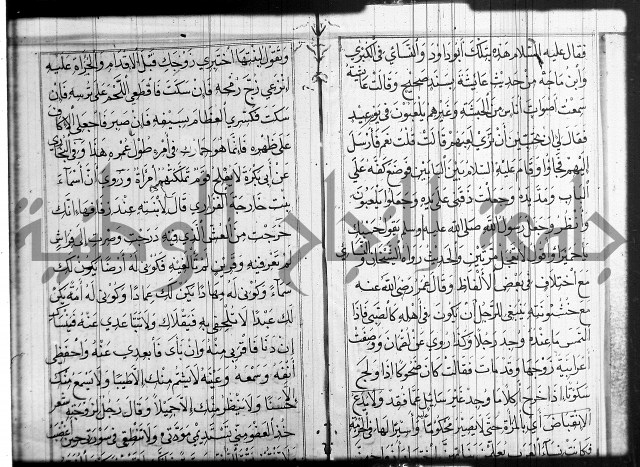 فقال عليه السلام هذه بتلك ابوداود والنسائي في الكبرى
وابن ماجه من حديث عائشة بسند صحيح وقالت عائشة
سمعت اصوات اناس من الحبشة وغيرهم يلعبون في يوم عيد
فقال لي اتحبين ان تري لعبهم قالت قلت نعم فارسل
اليهم فجاؤا وقام عليه السلام بين البابين فوضع كفه على
الباب ومد يده وجعلت ذقني على يده وجعلوا يلعبون
وانظر وجعل رسول الله صلى الله عليه وسلم يقول حسبك
مرتين والحديث رواه الشيخان
مع اختلاف في بعض الالفاظ وقال عمر رضي الله عنه
مع خشونته ينبغي للرجل ان يكون في اهله كالصبي فاذا
التمس ما عنده وجد رجلا وكذا روي عن لقمان ووصفت
اعرابية زوجها وقد مات فقالت كان ضحوكا اذا ولج
سكوتا اذا خرج اكلا ما وجد غير سائل عما فقد ولا يدع
الانقباض
وتقول لابنتها اختبري زوجك قبل الاقدام والجراة عليه
انزعي زج رمحه فان سكت فاقطعي اللحم على ترسه فان
سكت فكسري العظام بسيفه فان صبر فاجعلي الاكاف
على ظهره فانما هو حمار في امره طول عمره هذا وفي البخاري
عن ابي بكرة لا يفلح قوم تملكتهم امراة وروي ان اسماء
بنت خارجة الفزاري قال لابنته عند زفافها انك
خرجت من العش الذي فيه درجت وصرت الى فراش
لم تعرفيه وقرين لم تالفيه فكوني له ارضا يكون لك
سماء وكوني له مهادا يكن لك عمادا وكوني له امة يكن
لك عبدا لا تلحفي به فيقلاك ولا تباعدي عنه فينساك
ان دنا فاقربي منه وان ناى فابعدي عنه واحفظي
انفه وسمعه وعينه لا يشم منك الا طيبا ولا يسمع منك
الا حسنا ولا ينظر منك الا جميلا وقال رجل لزوجته شعر
خذي العفو مني تستديمي مودتي ولا تنطقي في سورتي حين اغضب
جامعة النجاح الوطنية